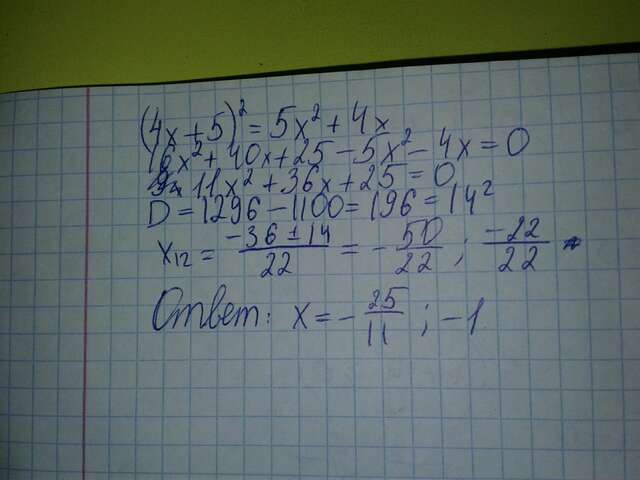 (4x+5)² = 5x² + 4x
16x² + 40x + 25 - 5x² - 4x = 0
11x² + 36x + 25 = 0
D = 1296 - 1100 = 196 = 14²
x₁₂ = (-36 ± 14)/22 = -50/22 ; -22/22
Ответ: x = -25/11 ; -1